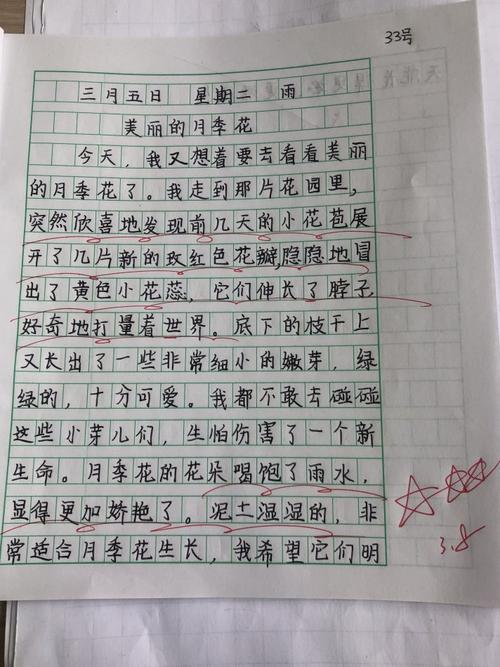 33号
三月五日 星期二 雨
美丽的月季花
今天,我又想着要去看看美丽
的月季花了。我走到那片花园里,
突然欣喜地发现前几天的小花苞展
开了几片新的玫红色花瓣,隐隐地冒
出了黄色小花蕊,它们伸长了脖子,
好奇地打量着世界。底下的枝干上
又长出了一些非常细小的嫩芽,绿
绿的,十分可爱。我都不敢去碰碰
这些小芽儿们,生怕伤害了一个新
生命。月季花的花朵喝饱了雨水,
显得更加娇艳了。泥土湿湿的,非
常适合月季花生长,我希望它们明
3.8